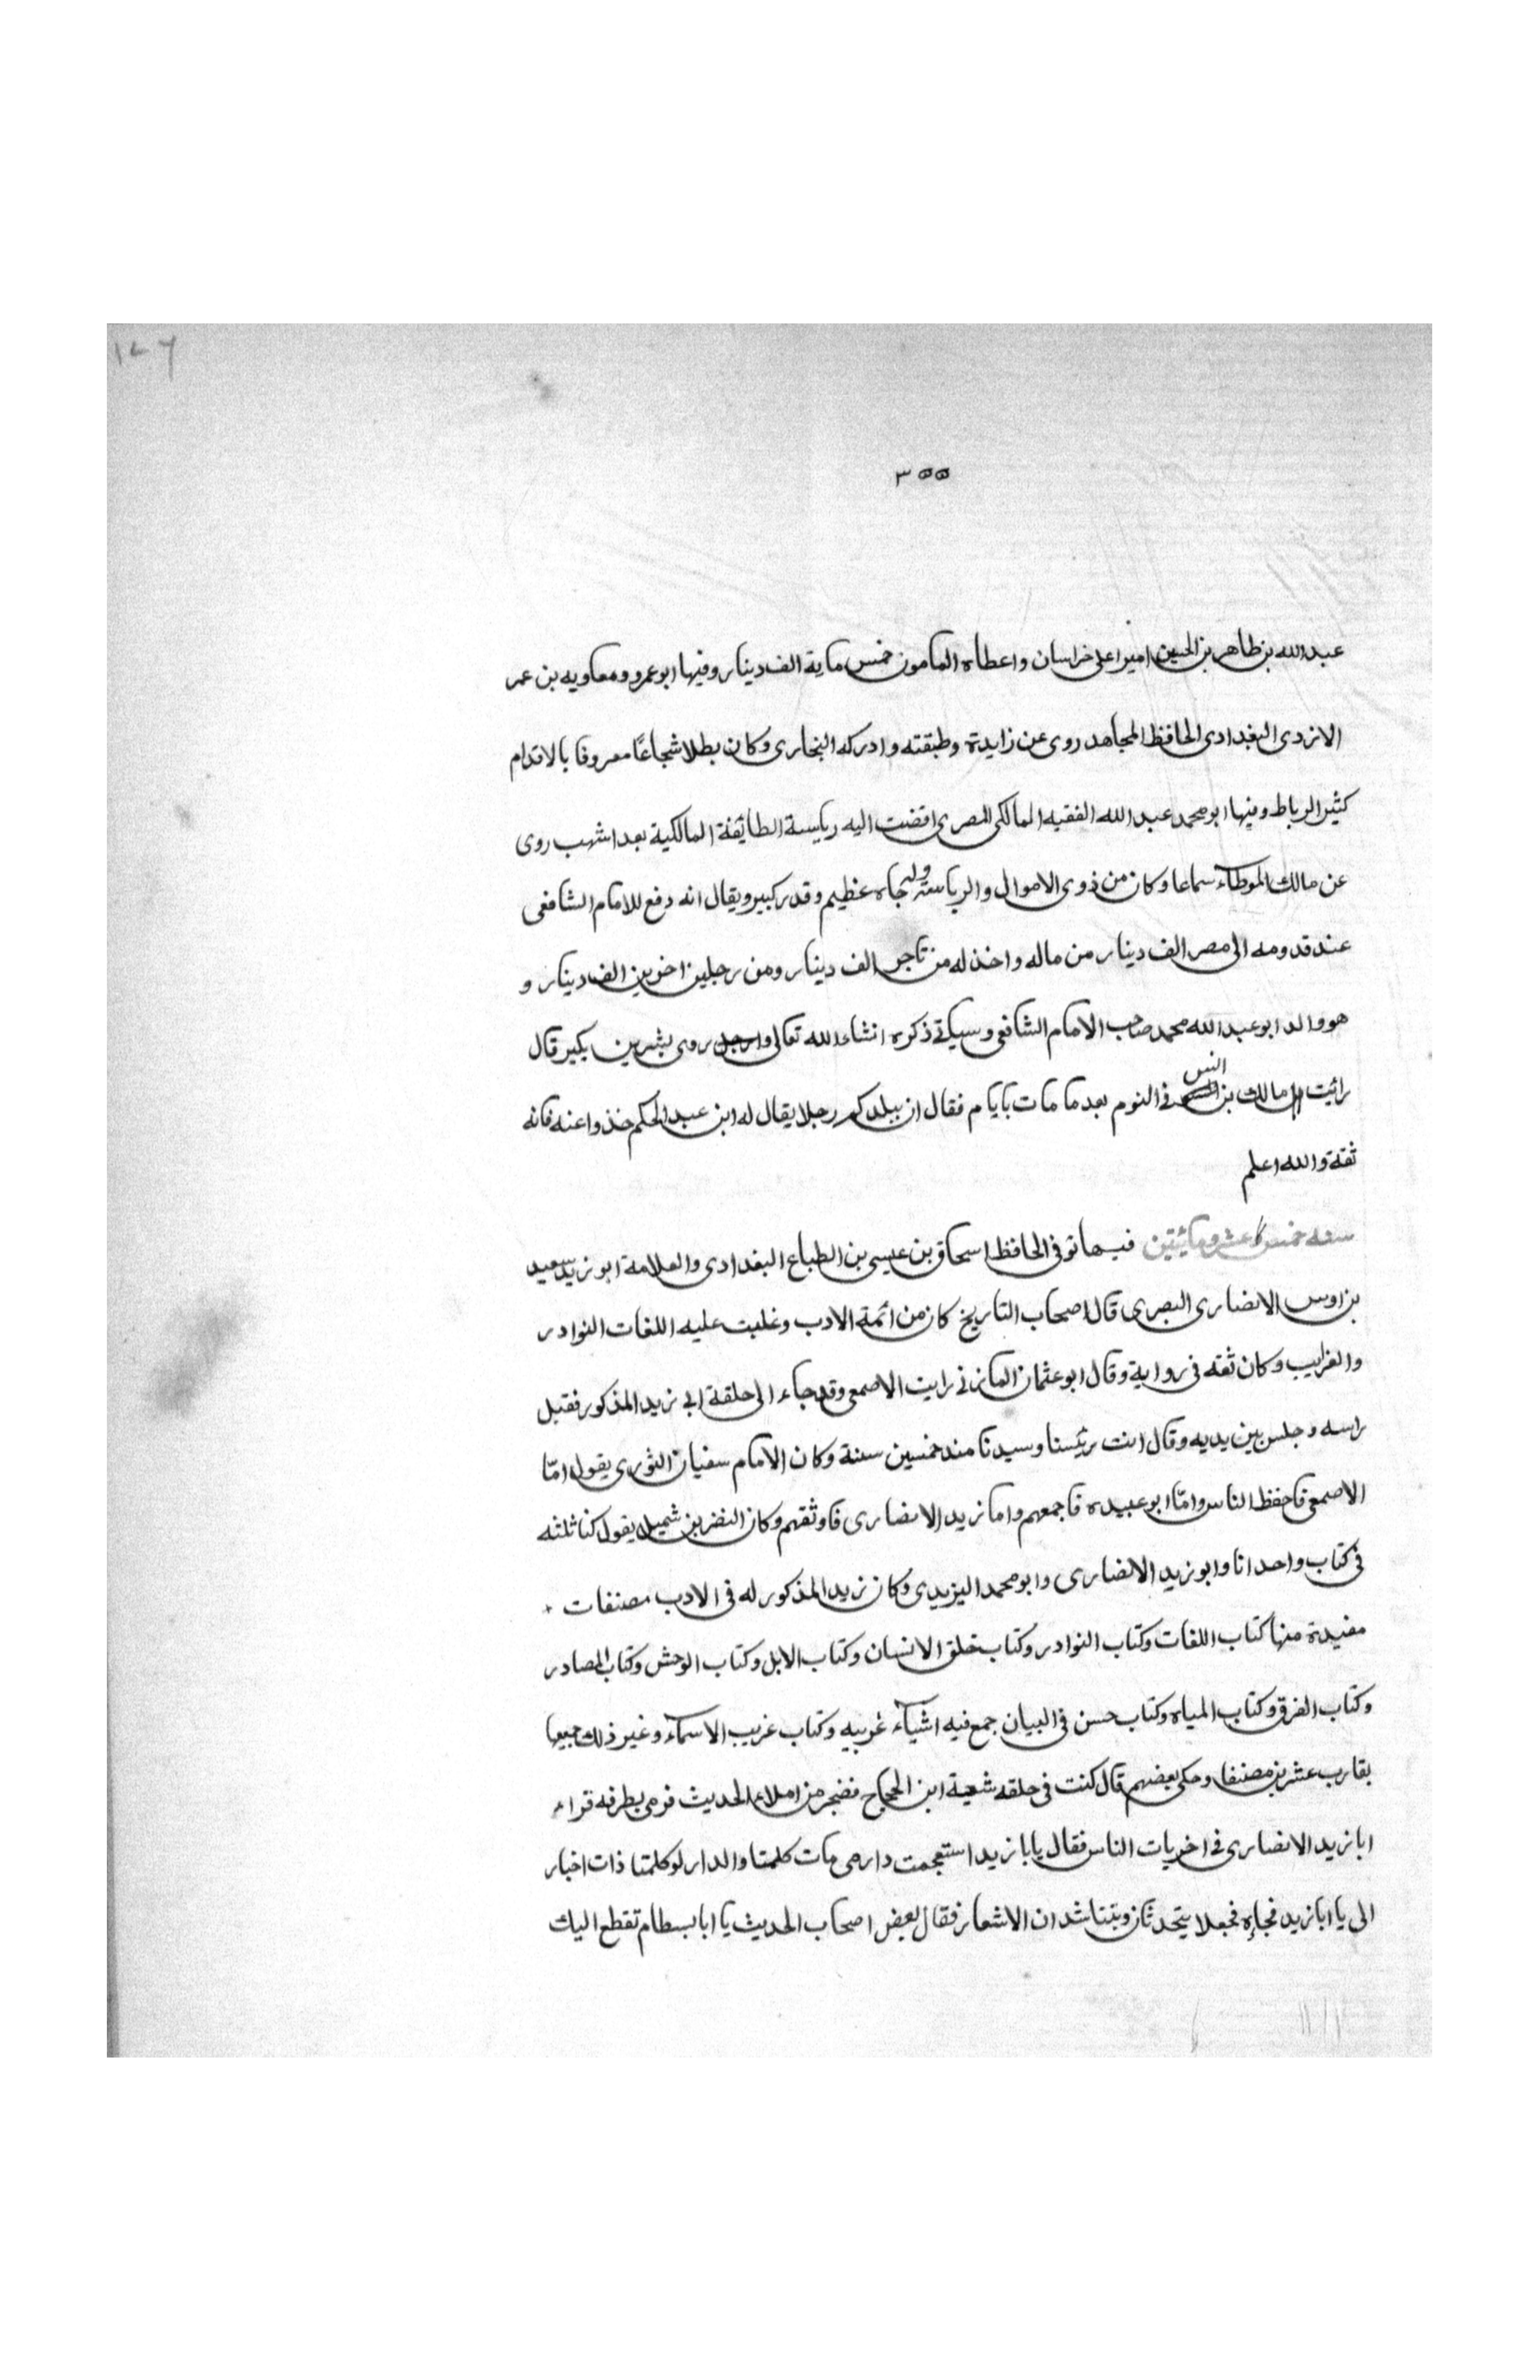 ١٧٦
٣٥٥
عبد الله بن طاهر بن الحسين اميرا على خراسان واعطاه المامون خمس ماية الف دينار وفيها ابو عمرو ومعاويه بن عمر
الازدى البغدادى الحافظ المجاهد روى عن زايدة وطبقته وادركه البخارى وكان بطلا شجاعًا معروفا بالاقدام
كثير الرباط وفيها ابو محمد عبد الله الفقيه المالكى المصرى افضت اليه رياسة الطائفة المالكية بعد اشهب روى
عن مالك الموطاء سماعا وكان من ذوى الاموال والرياسة وله جاه عظيم وقدر كبير ويقال انه دفع للامام الشافعى
عند قدومه الى مصر الف دينار من ماله واخذ له من تاجر الف دينار ومن رجلين اخرين الف دينار و
هو والد ابو عبد الله محمد صاحب الامام الشافعى وسياتى ذكره انشاء الله تعالى روى بشر بن بكير قال
رائيت مالك بن انس فى النوم بعد ما مات بايام فقال ان ببلدكم رجلا يقال له ابن عبد الحكم خذوا عنه فانه
ثقة والله اعلم
سنه خمس عشر ومائيتين فيها توفى الحافظ اسحاق بن عيسى بن الطباع البغدادى والعلامة ابو زيد سعيد
بن اوس الانصارى البصرى قال اصحاب التاريخ كان من ائمة الادب وغلبت عليه اللغات النوادر
والغرايب وكان ثقه فى رواية وقال ابو عثمان المازنى رايت الاصمعى وقد جاء الى حلقة ابى زيد المذكور فقبل
راسه وجلس بين يديه وقال انت رئيسنا وسيدنا منذ خمسين سنة وكان الامام سفيان الثورى يقول امّا
الاصمعى فاحفظ الناس وامّا ابو عبيده فاجمعهم واما زيد الانصارى فاوثقهم وكان النضر بن شميل يقول كنا ثلثه
فى كتاب واحد انا وابو زيد الانصارى وابو محمد اليزيدى وكان زيد المذكور له فى الادب مصنفات
مفيدة منها كتاب اللغات وكتاب النوادر وكتاب خلق الانسان وكتاب الابل وكتاب الوحش وكتاب المصادر
وكتاب الفرق وكتاب المياه وكتاب حسن فى البيان جمع فيه اشياء غريبه وكتاب غريب الاسماء وغير ذلك جميعها
يقارب عشرين مصنفا وحكى بعضهم قال كنت فى حلقه شعبة ابن الحجاج فضجر من املاء الحديث فرمى بطرفه فراء
ابا زيد الانصارى فى اخريات الناس فقال يابا زيد استعجمت دار مى مات كلمتا والدار لو كلمتا ذات اخبار
الى يا ابا زيد فجاءه فجعلا يتحدثان ويتناشدان الاشعار فقال بعض اصحاب الحديث يا ابا بسطام تقطع اليك